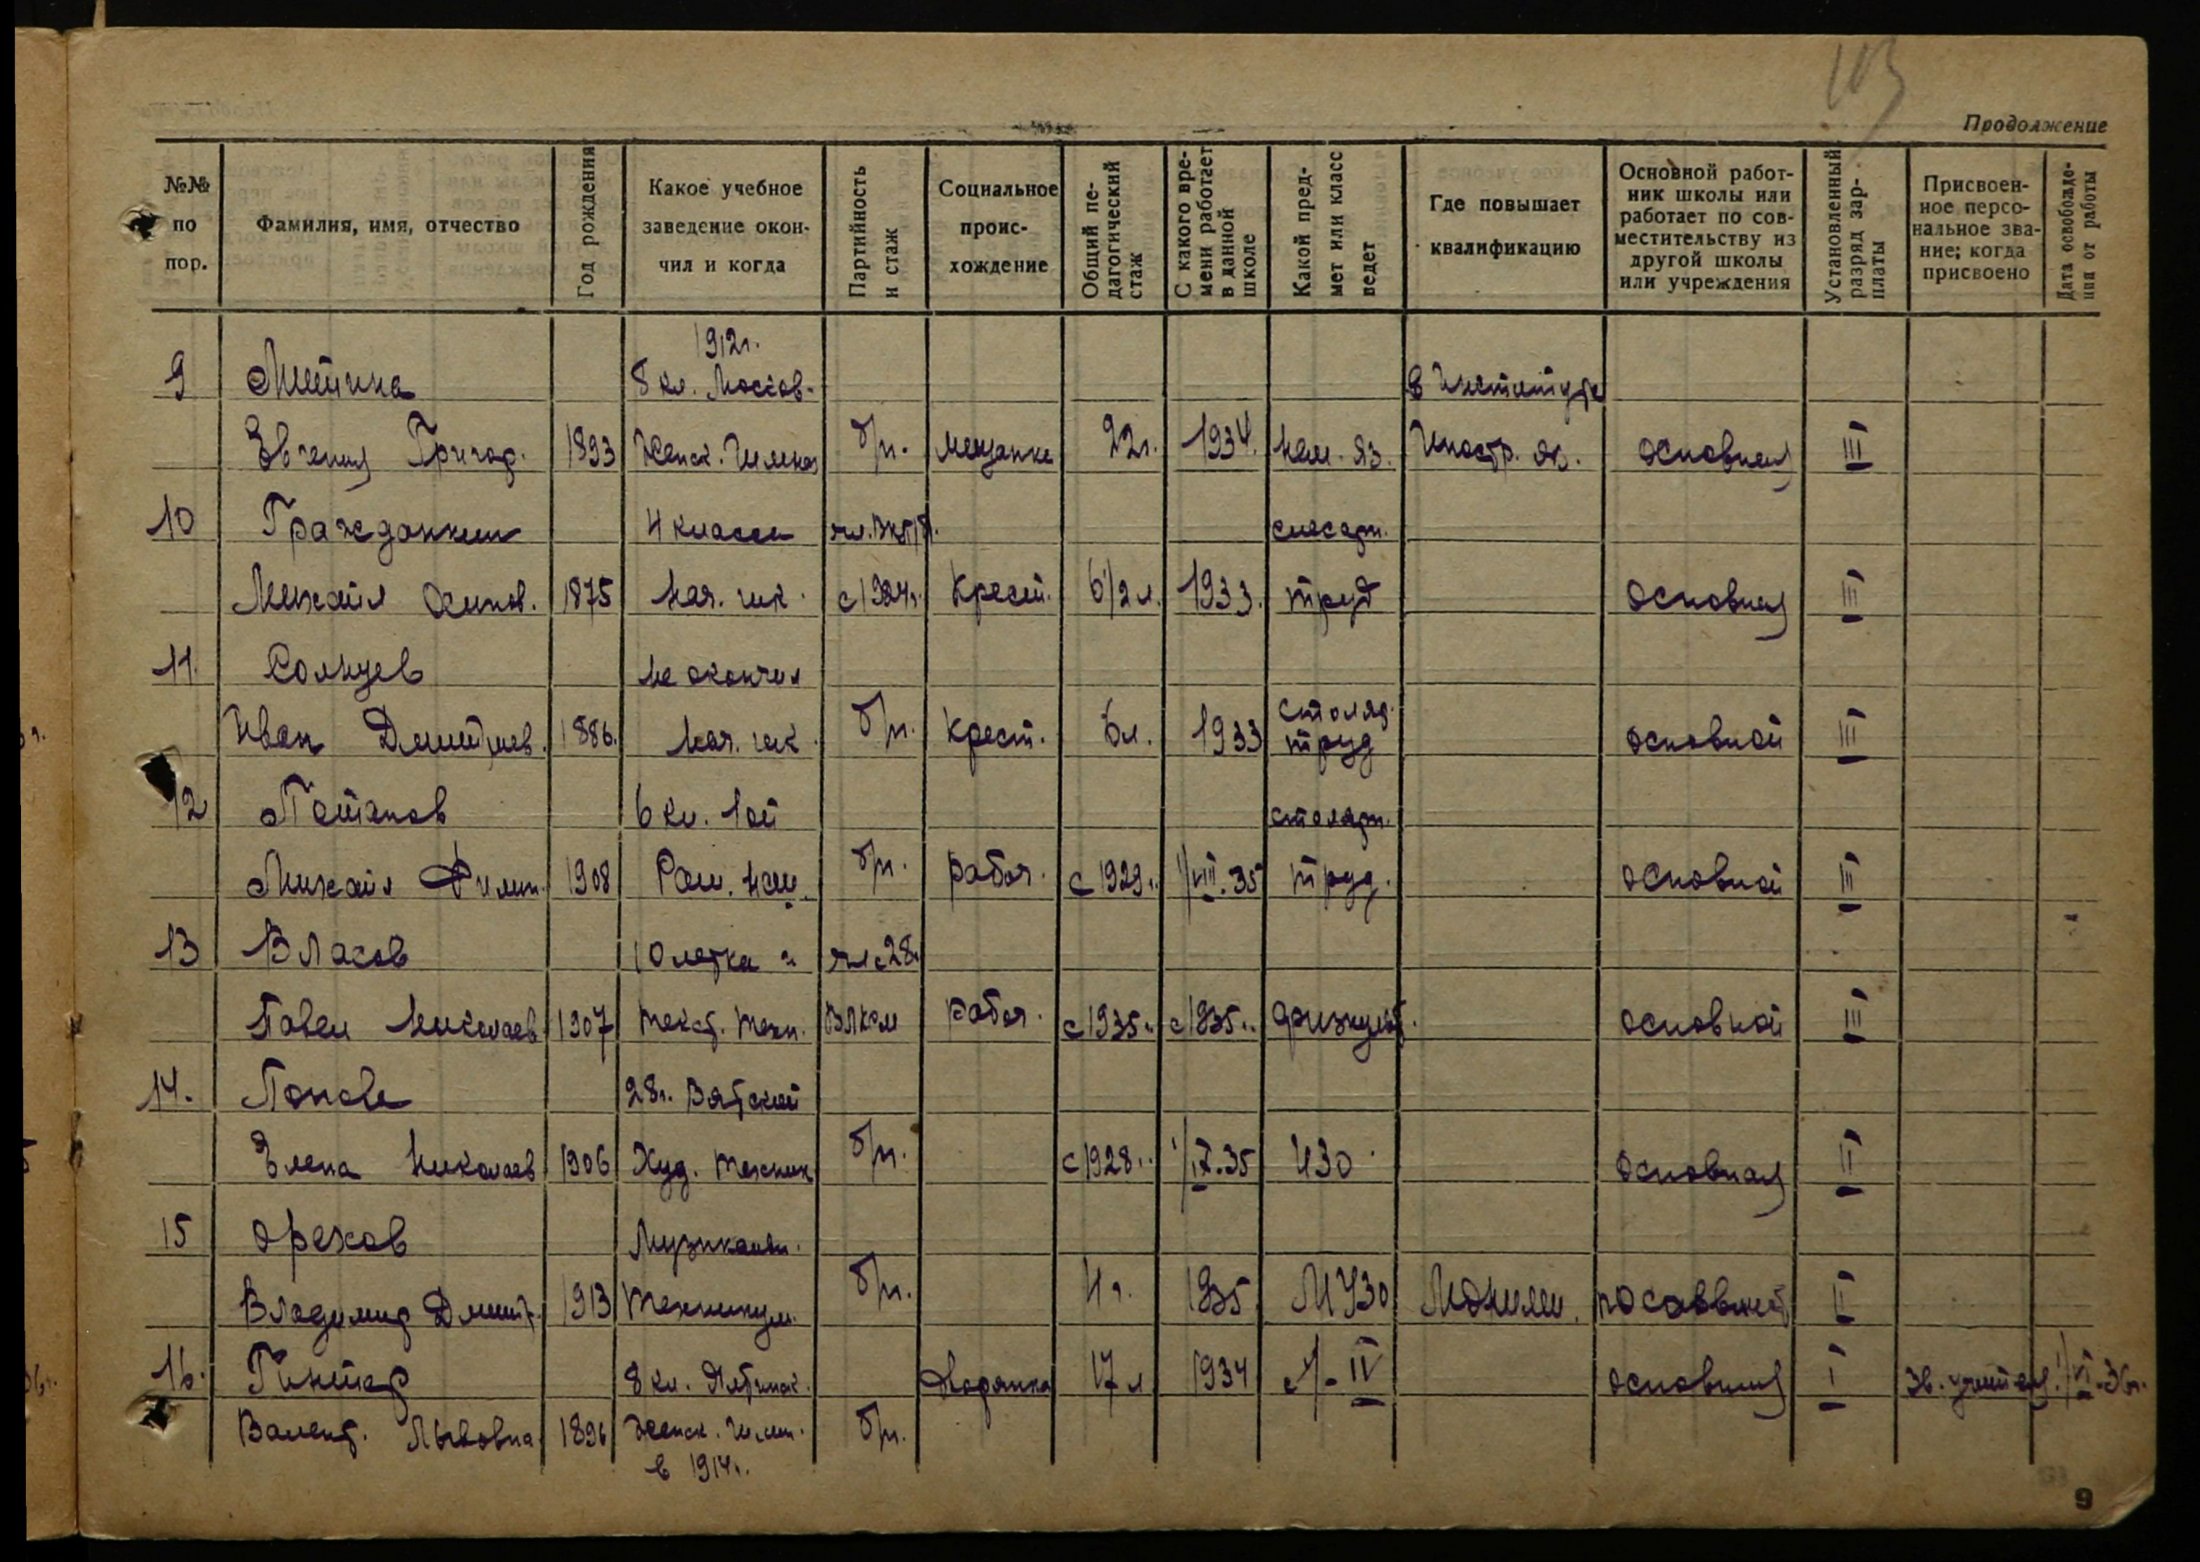 103
Продолжение
№№ по пор.
Фамилия, имя, отчество
Год рождения
Какое учебное заведение окончил и когда
Партийность и стаж
Социальное происхождение
Общий педагогический стаж
С какого времени работает в данной школе
Какой предмет или класс ведет
Где повышает квалификацию
Основной работник школы или работает по совместительству из другой школы или учреждения
Установленный разряд зарплаты
Присвоенное персональное звание; когда присвоено
Дата освобождения от работы
1912г.
9 Митина 8 кл. Москов. в Институте
Евгения Григор. 1893 Женск. Гимназ б/п. мещанка 22г. 1934. нем. яз. Иностр. яз. основная III
10 Гражданкин 4 класса чл. ВКП/б. слесарн.
Михаил Осипов. 1875 нач. шк. с 1924г. крест. 6 1/2 л. 1933. труд основная III
11. Солнцев не окончил
Иван Дмитриев. 1886. нач. шк. б/п. крест. 6л. 1933 столяр. труд основной III
12 Потапов 6 кл. 1ой столярн.
Михаил Филип. 1908 б/п. рабоч. с 1929г. 1/VIII.35 труд. основной III
13 Власов 10 летка и чл с 28г
Павел Николаев 1907 текст. техн. ВЛКСМ рабоч. с 1935г. с 1935г. физкульт. основной III
14. 28г. Вятский
Елена Николаев 1906 Худ. техник б/п. с 1928г. 1/IX.35 ИЗО основная II
15 Орехов Музыкальн.
Владимир Дмит. 1913 техникум. б/п. 4 г. 1935 МУЗО II
16. Гинтер 8 кл. дворянка 17 л 1934 IV основная I зв. учителя. 1/VI-36г.
Валент. Львовна 1896 Женск. Гимн. б/п.
в 1914г.
9